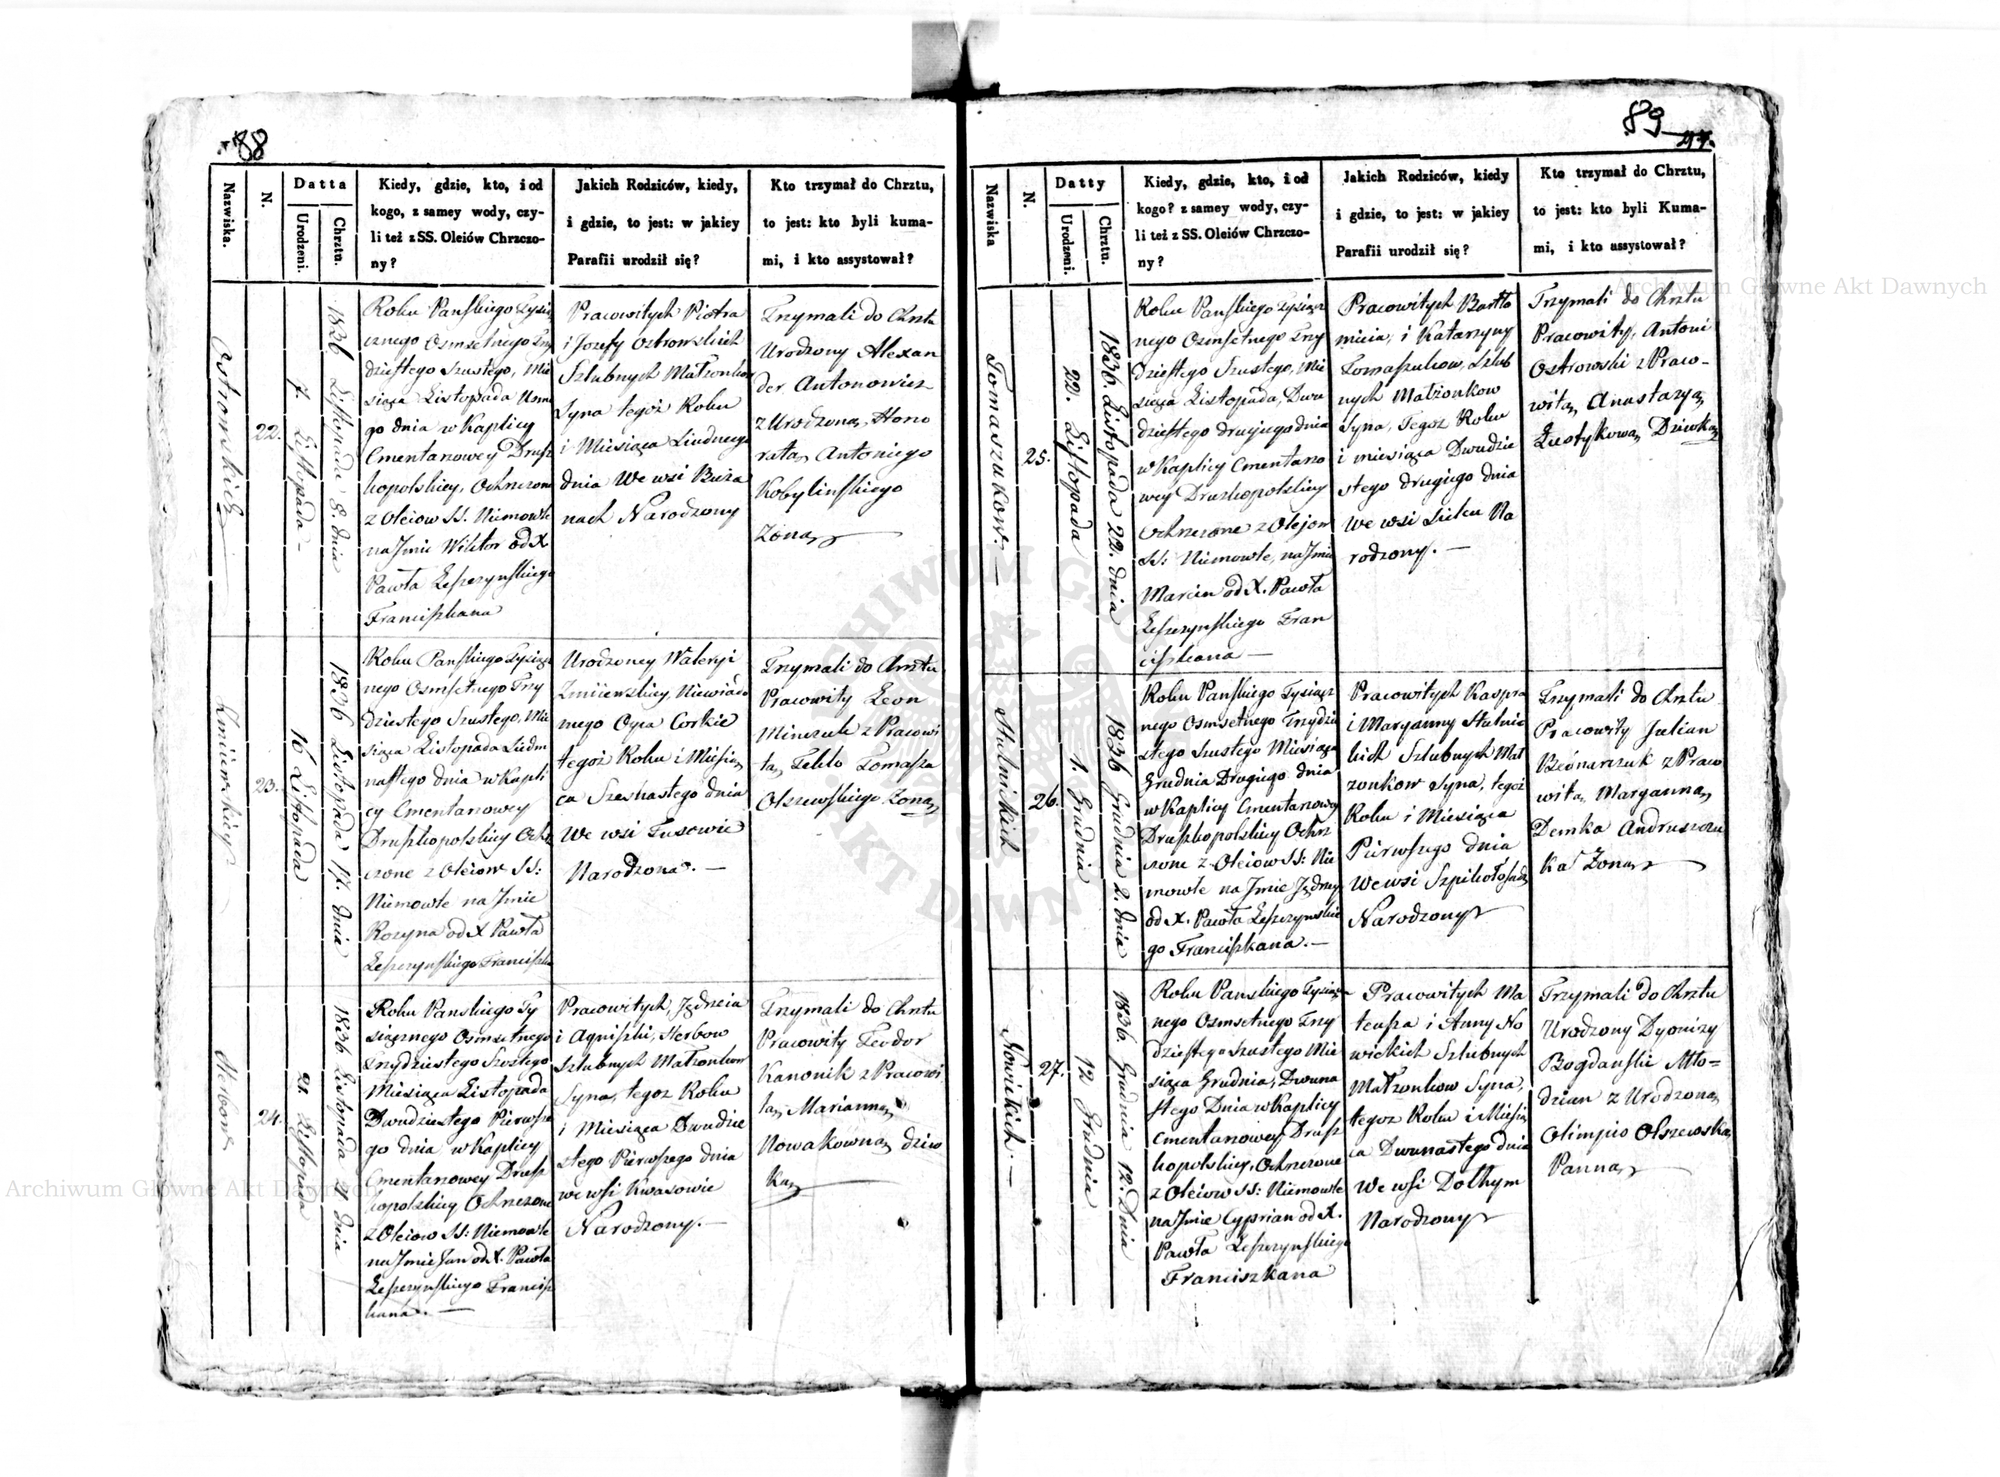 88
Nazwiska.
N.
Datta
Urodzeni.
Chrztu.
Kiedy, gdzie, kto, i od
kogo, z samey wody, czy-
li też z SS. Oleiów Chrzczo-
ny?
Jakich Rodziców, kiedy,
i gdzie, to jest: w jakiey
Parafii urodził się?
Kto trzymał do Chrztu,
to jest: kto byli kuma-
mi, i kto assystował?
Ostrowskich
22.
7. Listopada
1836 Listopada 8. dnia
Roku Panskiego Tysią
cznego Osmsetnego Trzy
dziestego Szustego, Mie
siąca Listopada Usme
go dnia w Kaplicy
Cmentarzowey Drusz
kopolskiey, Ochrzczone
z Oleiow SS. Niemowle
na Jmie Wiktor od X
Pawła Leszczynskiego
Franciszkana
Pracowitych Piotra
i Jozefy Ostrowskich
Szlubnych Małzonkow
Syna tegoż Roku
i Miesiąca Siudmego
dnia We wsi Buża
nach Narodzony
Trzymali do Chrztu
Urodzony Alexan
der Antonowicz
z Urodzoną Hono
ratą Antoniego
Kobylinskiego
Zoną
Zmiiewskiey
23.
16 Listopada
1836 Listopada 17. dnia
Roku Panskiego Tysiącz
nego Osmsetnego Trzy
dziestego Szustego, Mie
siąca Listopada Siedm
nastego dnia w Kapli
cy Cmentarzowey
Druszkopolskiey Ochrz
czone z Oleiow SS:
Niemowle na Jmie
Rozyna od X Pawła
Leszczynskiego Franciszka
Urodzoney Waleryi
Zmiiewskiey, Niewiado
mego Oyca Corkie
tegoż Roku i Miesią
ca Szesnastego dnia
We wsi Tusowie
Narodzona. —
Trzymali do Chrztu
Pracowity Leon
Minczuk z Pracowi
tą Teklo Tomasza
Olszewskiego Zoną
Herbow
24.
21. Listopada
1836 Listopada 21 dnia
Roku Panskiego Ty
siącznego Osmsetnego
Trzydziestego Szostego
Miesiąca Listopada
Dwudziestego Pierwsze
go dnia w Kaplicy
Cmentarzowey Drusz
kopolskiey Ochrzczone
z Oleiow SS: Niemowle
na Jmie Jan od X. Pawła
Leszczynskiego Francisz
kana. —
Pracowitych, Jędrzeia
i Agniszki, Herbow
Szlubnych Małzonkow
Syna, tegoz Roku
i Miesiąca Dwudzie
stego Pierwszego dnia
we wsi Kwasowie
Narodzony. —
Trzymali do Chrztu
Pracowity Teodor
Kanonik z Pracowi
tą, Marianną
Nowakowną dziw
ką
89
Nazwiska
N.
Datty
Urodzeni.
Chrztu.
Kiedy, gdzie, kto, i od
kogo? z samey wody, czy-
li też z SS. Oleiów Chrzczo-
ny?
Jakich Rodziców, kiedy
i gdzie, to jest: w jakiey
Parafii urodził się?
Kto trzymał do Chrztu,
to jest: kto byli Kuma-
mi, i kto assystował?
Tomaszukow. —
25.
22. Listopada
1836. Listopada 22. dnia
Roku Panskiego Tysiącz
nego Osmsetnego Trzy
dziestego Szustego, Mie
siąca Listopada, Dwu
dziestego drugiego dnia
w Kaplicy Cmentarzo
wey Druszkopolskiey
Ochrzczone z Olejow
SS: Niemowle, na Jmie
Marcin od X. Pawła
Leszczynskiego Fran
ciszkana —
Pracowitych Bartło
mieia, i Katarzyny
Tomaszukow, Szlub
nych Małzonkow
Syna, Tegoz Roku
i miesiąca Dwudzie
stego drugiego dnia
We wsi Sielcu Na
rodzony. —
Trzymali do Chrztu
Pracowity, Antoni
Ostrowski z Praco-
witą Anastazyą
Łustykową Dziwką
Stulnickich
26.
1. Grudnia
1836 Grudnia 2. dnia
Roku Panskiego Tysiącz
nego Osmsetnego Trzydzie
stego Szustego Miesiąca
Grudnia Drugiego dnia
w Kaplicy Cmentarzowey
Druszkopolskiey Ochrz
czone z Oleiow SS: Nie
mowle na Jmie Jędrzey
od X. Pawła Leszczynskie
go Franciszkana. —
Pracowitych Kaspra
i Maryanny Stulnic
kich Szlubnych Mał
zonkow Syna, tegoż
Roku i Miesiąca
Pierwszego dnia
We wsi Szpikołosach
Narodzony
Trzymali do Chrztu
Pracowity Julian
Bednarczuk z Praco
witą, Maryanną
Demka Andruszczu
ka Zoną
Nowickich. —
27.
12 Grudnia
1836. Grudnia 12. Dnia
Roku Panskiego Tysiącz
nego Osmsetnego Trzy
dziestego Szustego Mie
siąca Grudnia, Dwuna
stego Dnia w Kaplicy
Cmentarzowey Drusz
kopolskiey, Ochrzczone
z Oleiow SS: Niemowle
na Jmie Cyprian od X.
Pawła Leszczynskiego
Franciszkana
Pracowitych Ma
teusza i Anny No
wickich Szlubnych
Małzonkow Syna,
tegoz Roku i Miesią
ca Dwunastego dnia
We wsi Dołhym
Narodzony
Trzymali do Chrztu
Urodzony Dyonizy
Bogdanski Mło=
dzian z Urodzoną
Olimpio Olszewską
Panną
Archiwum Główne Akt Dawnych
Archiwum Główne Akt Dawnych